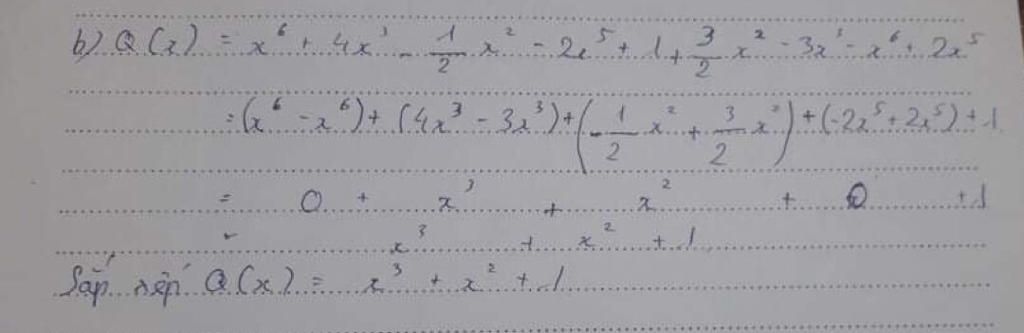 b) Q(x) = x⁶ + 4x³ - 1/2 x² - 2x⁵ + 1 + 3/2 x² - 3x³ - x⁶ + 2x⁵
= (x⁶ - x⁶) + (4x³ - 3x³) + (-1/2 x² + 3/2 x²) + (-2x⁵ + 2x⁵) + 1
= 0 + x³ + x² + 0 + 1
= x³ + x² + 1
Sắp xếp Q(x) = x³ + x² + 1